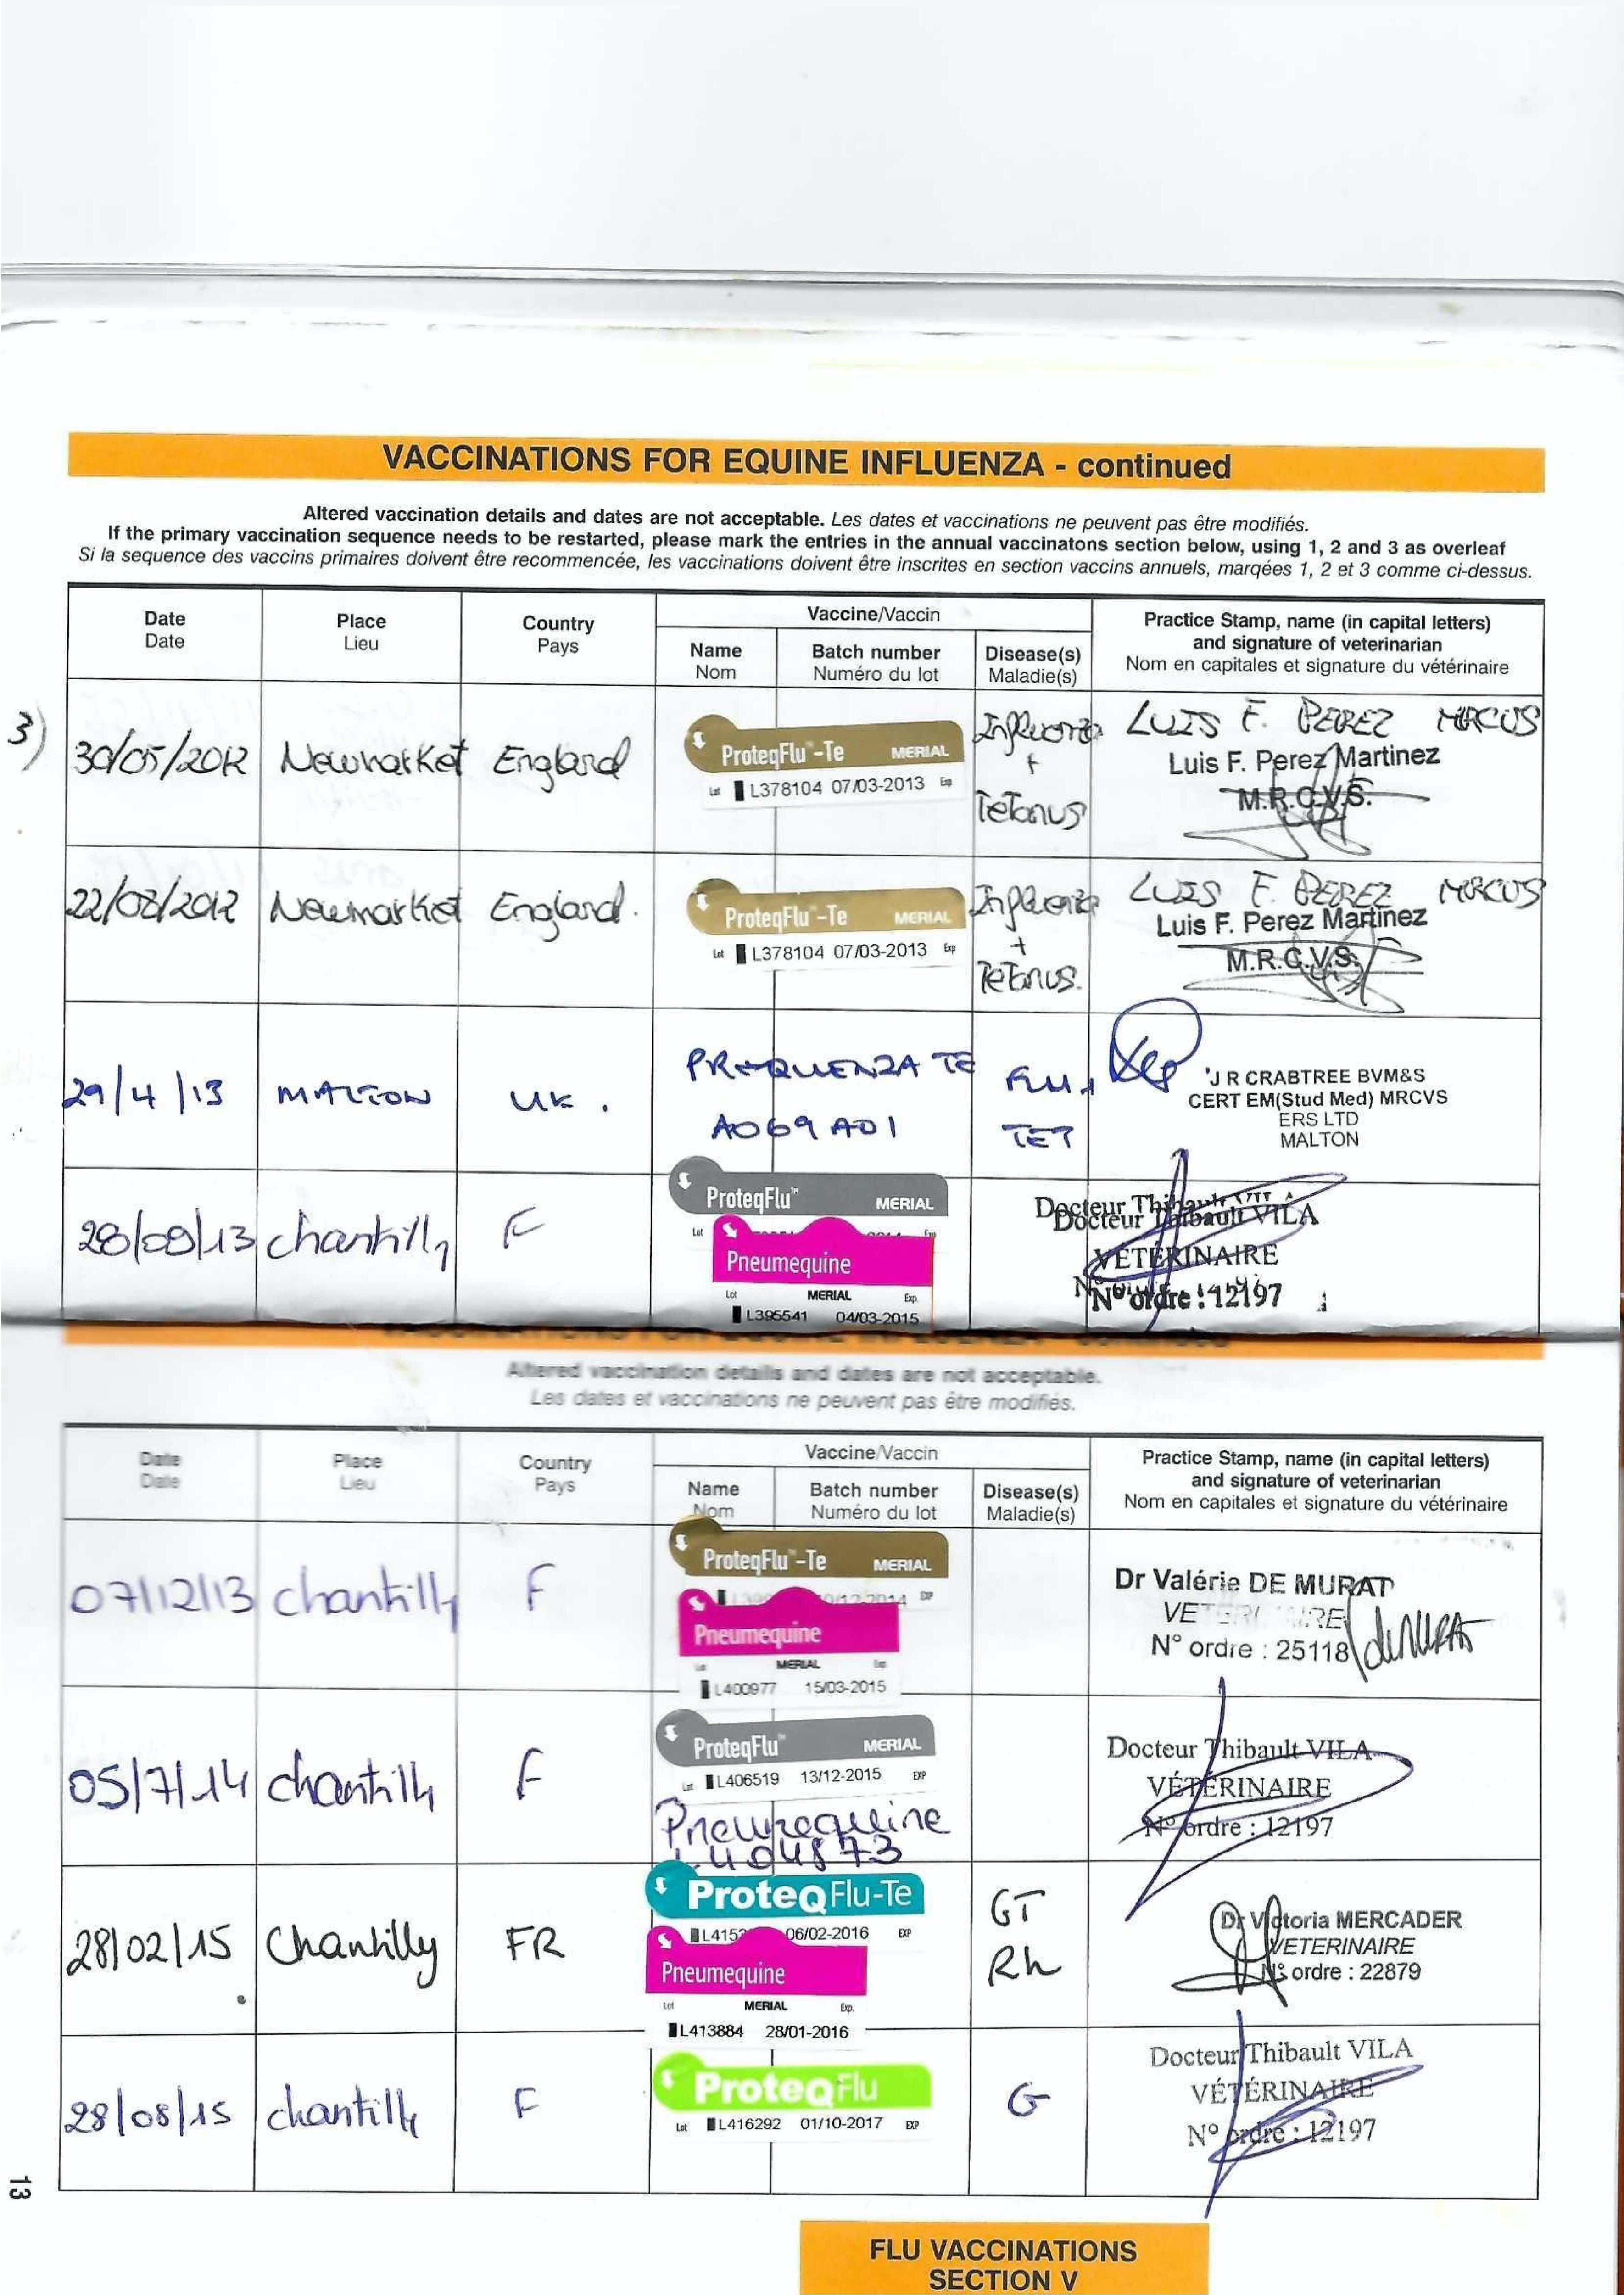 VACCINATIONS FOR EQUINE INFLUENZA - continued
Altered vaccination details and dates are not acceptable. Les dates et vaccinations ne peuvent pas être modifiés.
If the primary vaccination sequence needs to be restarted, please mark the entries in the annual vaccinatons section below, using 1, 2 and 3 as overleaf
Si la sequence des vaccins primaires doivent être recommencée, les vaccinations doivent être inscrites en section vaccins annuels, marqées 1, 2 et 3 comme ci-dessus.
Date
Date
Place
Lieu
Country
Pays
Vaccine/Vaccin
Name
Nom
Batch number
Numéro du lot
Disease(s)
Maladie(s)
Practice Stamp, name (in capital letters)
and signature of veterinarian
Nom en capitales et signature du vétérinaire
3)
30/05/2012 Newmarket England
ProteqFlu™-Te MERIAL
Lot L378104 07/03-2013 Exp
Influenza
+
Tetanus
LUIS F. PEREZ MRCVS
Luis F. Perez Martinez
M.R.C.V.S.
22/08/2012 Newmarket England.
ProteqFlu™-Te MERIAL
Lot L378104 07/03-2013 Exp
Influenza
+
Tetanus.
LUIS F. PEREZ MRCVS
Luis F. Perez Martinez
M.R.C.V.S.
29/4/13 MALTON UK.
PREQUENZA TE
A069A01
FLU +
TET
J R CRABTREE BVM&S
CERT EM(Stud Med) MRCVS
ERS LTD
MALTON
28/08/13 chantilly F
ProteqFlu™ MERIAL
Lot
Pneumequine
Lot MERIAL Exp.
L395541 04/03-2015
Docteur Thibault VILA
VÉTÉRINAIRE
N° ordre : 12197
Altered vaccination details and dates are not acceptable.
Les dates et vaccinations ne peuvent pas être modifiés.
Date
Date
Place
Lieu
Country
Pays
Vaccine/Vaccin
Name
Nom
Batch number
Numéro du lot
Disease(s)
Maladie(s)
Practice Stamp, name (in capital letters)
and signature of veterinarian
Nom en capitales et signature du vétérinaire
07/12/13 chantilly F
ProteqFlu™-Te MERIAL
Pneumequine
MERIAL
L400977 15/03-2015
Dr Valérie DE MURAT
VETERINAIRE
N° ordre : 25118
05/7/14 chantilly F
ProteqFlu™ MERIAL
Lot L406519 13/12-2015 EXP
Pneumequine
L404873
Docteur Thibault VILA
VÉTÉRINAIRE
N° ordre : 12197
28/02/15 Chantilly FR
ProteqFlu-Te
06/02-2016 EXP
Pneumequine
Lot MERIAL Exp.
L413884 28/01-2016
GT
Rh
Dr Victoria MERCADER
VETERINAIRE
N° ordre : 22879
28/08/15 chantilly F
ProteqFlu
Lot L416292 01/10-2017 EXP
G
Docteur Thibault VILA
VÉTÉRINAIRE
N° ordre : 12197
13
FLU VACCINATIONS
SECTION V